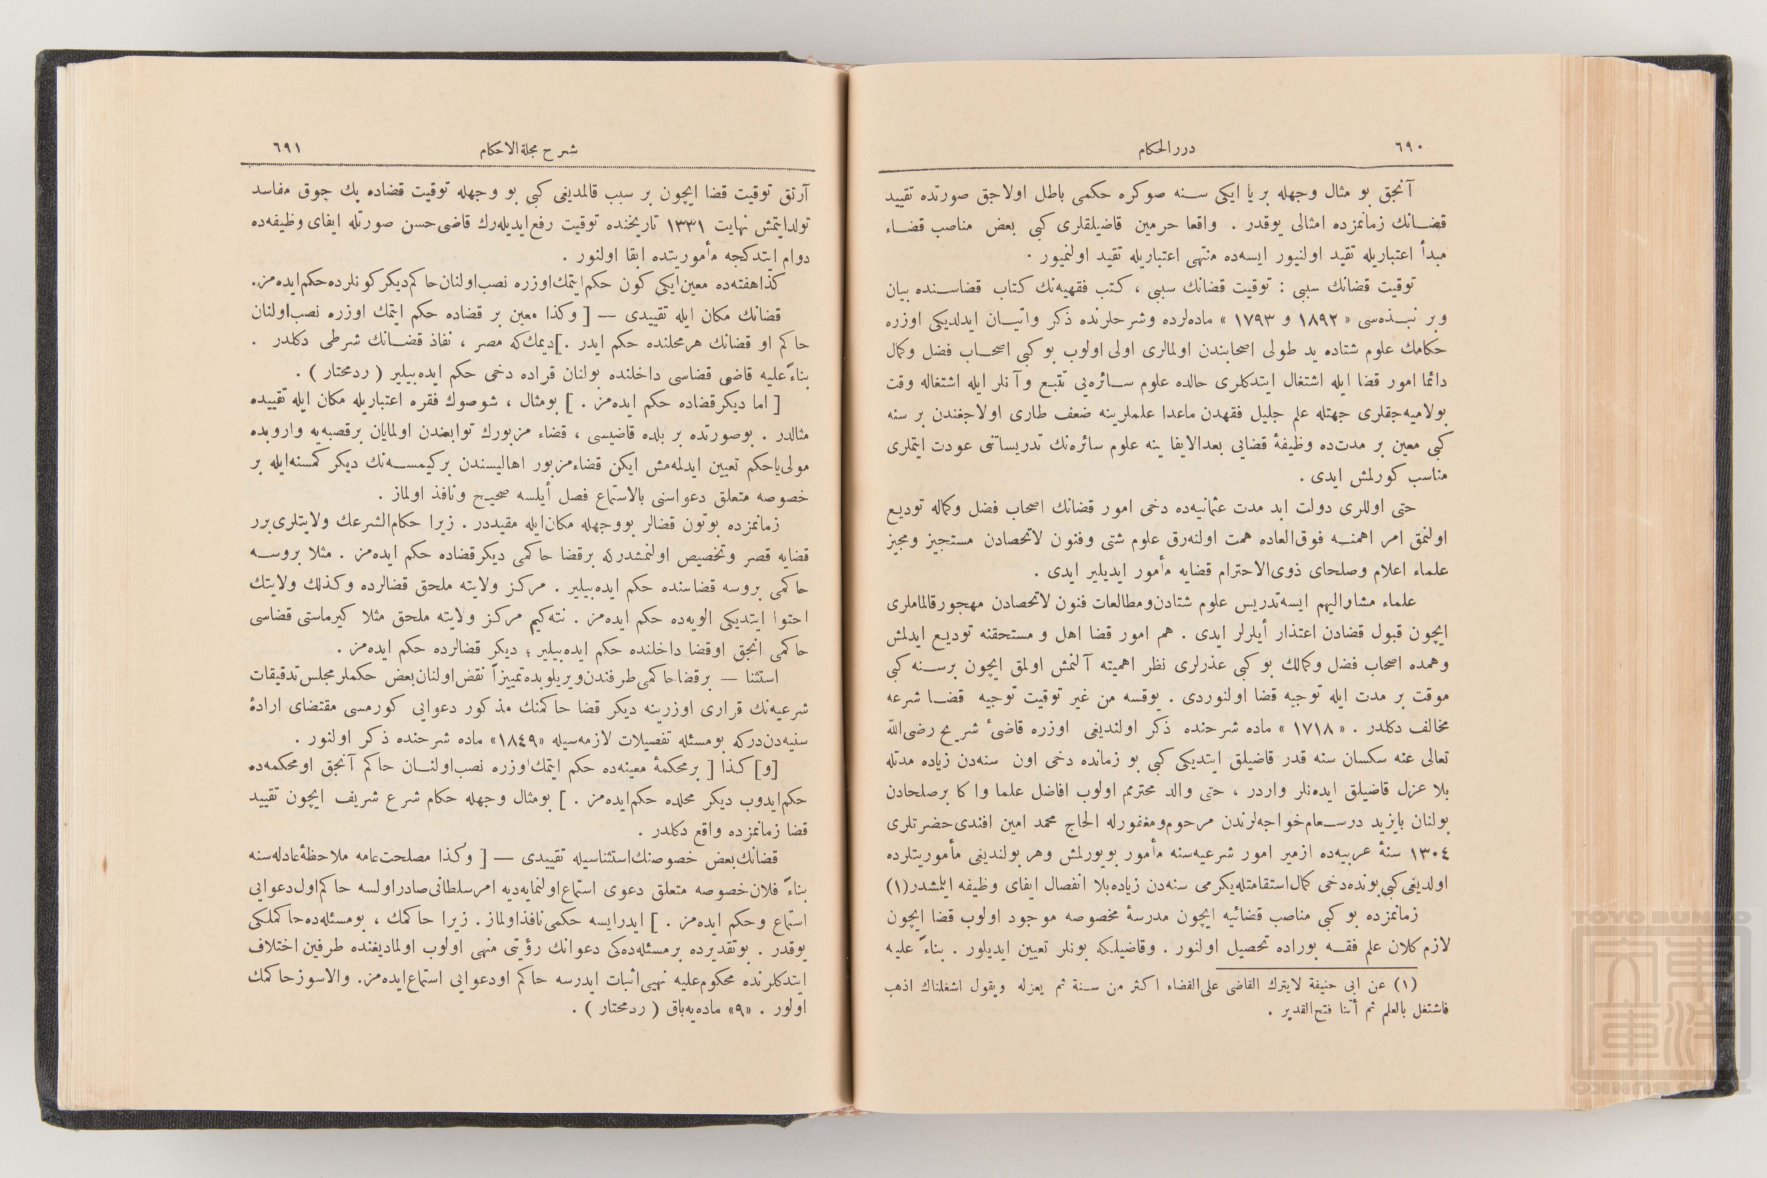 ٦٩٠ دررالحكام
آنجق بو مثال وجهله بر يا ايكى سـنه صوكره حكمى باطل اولاجق صورتده تقييد
قضـانك زمانمزده امثالى يوقدر . واقعا حرمين قاضيلقلرى كبى بعض مناصب قضـاء
مبدأ اعتباريله تقيد اولنيور ايسه‌ده منتهى اعتباريله تقيد اولنميور .
توقيت قضانك سببى : توقيت قضانك سببى ، كتب فقهيه‌نك كتاب قضاسـنده بيان
وبر نبـذه‌سى « ١٨٩٢ و ١٧٩٣ » ماده‌لرده وشرحلرنده ذكر واتيـان ايدلديكى اوزره
حكامك علوم شتاده يد طولى اصحابندن اولمالرى اولى اولوب بو كبى اصحـاب فضل وكمال
دائما امور قضا ايله اشتغال ايتدكلرى حالده علوم سـائره‌يى تتبع وآنلر ايله اشتغاله وقت
بولاميه‌جقلرى جهتله علم جليل فقهدن ماعدا علملرينه ضعف طارى اولاجغندن بر سنه
كبى معين بر مدت‌ده وظيفۀ قضايى بعدالايفا ينه علوم سائره‌نك تدريساتنى عودت ايتملرى
مناسب كورلمش ايدى .
حتى اوللرى دولت ابد مدت عثمانيه‌ده دخى امور قضانك اصحاب فضل وكماله توديع
اولنمق امر اهمنـه فوق‌العاده همت اولنه‌رق علوم شتى وفنون لاتحصادن مستجيز ومجيز
علماء اعلام وصلحاى ذوى‌الاحترام قضايه مأمور ايديلير ايدى .
علماء مشاراليهم ايسه‌تدريس علوم شتادن‌ومطالعات فنون لاتحصادن مهجورقالماملرى
ايچون قبول قضادن اعتذار أيلرلر ايدى . هم امور قضا اهل و مستحقنه توديع ايدلمش
وهمده اصحاب فضل وكمالك بو كبى عذرلرى نظر اهميته آلنمش اولمق ايچون برسـنه كبى
موقت بر مدت ايله توجيه قضا اولنوردى . يوقسه من غير توقيت توجيه قضـا شرعه
مخالف دكلدر . « ١٧١٨ » ماده شرحنده ذكر اولنديغى اوزره قاضىٔ شريح رضى‌الله
تعالى عنه سكسان سنه قدر قاضيلق ايتديكى كبى بو زمانده دخى اون سنه‌دن زياده مدتله
بلا عزل قاضيلق ايده‌نلر واردر ، حتى والد محترمم اولوب افاضل علما واكابرصلحادن
بولنان بايزيد درسـعام‌خواجه‌لرندن مرحوم‌ومغفورله الحاج محمد امين افندى‌حضرتلرى
١٣٠٤ سنۀ عربيه‌ده ازمير امور شرعيه‌سنه مأمور بويورلمش وهر بولنديغى مأموريتلرده
اولديغى‌كبى‌بونده‌دخى كمال‌استقامتله‌يكرمى سنه‌دن زياده‌بلا انفصال ايفاى وظيفه ايلمشدر(١)
زمانمزده بو كبى مناصب قضائيه ايچون مدرسۀ مخصوصه موجود اولوب قضا ايچون
لازم كلان علم فقـه بوراده تحصيل اولنور . وقاضيلكه بونلر تعيين ايديلور . بناءً عليه
(١) عن ابى حنيفة لايترك القاضى على‌القضاء اكثر من سـنة ثم يعزله ويقول اشغلناك اذهب
فاشتغل بالعلم ثم أتنا فتح‌القدير .
شرح مجلة‌الاحكام ٦٩١
آرتق توقيت قضا ايچون بر سبب قالمديغى كبى بو وجهله توقيت قضاده پك چوق مفاسد
تولدايتمش نهايت ١٣٣١ تاريخنده توقيت رفع‌ايديله‌رك قاضى‌حسن صورتله ايفاى وظيفه‌ده
دوام ايتدكجه مأموريتده ابقا اولنور .
كذاهفته‌ده معين‌ايكى كون حكم‌ايتمك‌اوزره نصب‌اولنان‌حاكم‌ديكركونلرده‌حكم‌ايده‌مز.
قضانك مكان ايله تقييدى — [ وكذا معين بر قضاده حكم ايتمك اوزره نصب‌اولنان
حاكم او قضانك هرمحلنده حكم ايدر .]ديمك‌كه مصر ، نفاذ قضـانك شرطى دكلدر .
بناءً عليه قاضى قضاسى داخلنده بولنان قراده دخى حكم ايده‌بيلير ( ردمحتار ) .
[ اما ديكرقضاده حكم ايده‌مز . ] بومثال ، شوصوك فقره اعتباريله مكان ايله تقييده
مثالدر . بوصورتده بر بلده قاضيسى ، قضاء مزبورك توابعندن اولمايان برقصبه‌يه واروبده
مولى‌ياحكم تعيين ايدلمه‌مش ايكن قضاءمزبور اهاليسندن بركيمسـه‌نك ديكر كمسنه‌ايله بر
خصوصه متعلق دعواسنى بالاستماع فصل أيلسه صحيح ونافذ اولماز .
زمانمزده بوتون قضالر بووجهله مكان‌ايله مقيددر . زيرا حكام‌الشرعك ولايتلرى‌برر
قضايه قصر وتخصيص اولنمشدركه برقضا حاكمى ديكرقضاده حكم ايده‌مز . مثلا بروسـه
حاكمى بروسه قضاسنده حكم ايده‌بيلير . مركز ولايته ملحق قضالرده وكذلك ولايتك
احتوا ايتديكى الويه‌ده حكم ايده‌مز . نته‌كيم مركز ولايته ملحق مثلا كيرماستى قضاسى
حاكمى انجق اوقضا داخلنده حكم ايده‌بيلير ؛ ديكر قضالرده حكم ايده‌مز .
استثنا — برقضاحاكمى‌طرفندن‌ويريلوبده‌تمييزاً نقض‌اولنان‌بعض حكملرمجلس‌تدقيقات
شرعيه‌نك قرارى اوزرينه ديكر قضا حاكمنك مذكور دعوايى كورمسى مقتضاى ارادۀ
سنيه‌دن‌دركه بومسئله تفصيلات لازمه‌سيله «١٨٤٩» ماده شرحنده ذكر اولنور .
[و] كذا [ برمحكمۀ معينه‌ده حكم ايتمك‌اوزره نصب‌اولنـان حاكم آنجق اومحكمه‌ده
حكم‌ايدوب ديكر محلده حكم‌ايده‌مز . ] بومثال وجهله حكام شرع شريف ايچون تقييد
قضا زمانمزده واقع دكلدر .
قضانك‌بعض خصوصنك‌استثناسيله تقييدى — [ وكذا مصلحت‌عامه ملاحظۀعادله‌سنه
بناءً فلان‌خصوصه متعلق دعوى استماع‌اولنمايه‌ديه امرسلطانى‌صادراولسه حاكم‌اول‌دعوايى
استماع وحكم ايده‌مز . ] ايدرايسه حكمى‌نافذاولماز . زيرا حاكمك ، بومسئله‌ده‌حاكملكى
يوقدر . بوتقديرده برمسئله‌ده‌كى دعوانك رؤيتى منهى اولوب اولماديغنده طرفين اختلاف
ايتدكلرنده محكوم‌عليه نهيى‌اثبات ايدرسه حاكم اودعوايى استماع‌ايده‌مز. والاسوزحاكمك
اولور . «٩» ماده‌يه‌باق ( ردمحتار ) .
TOYO BUNKO